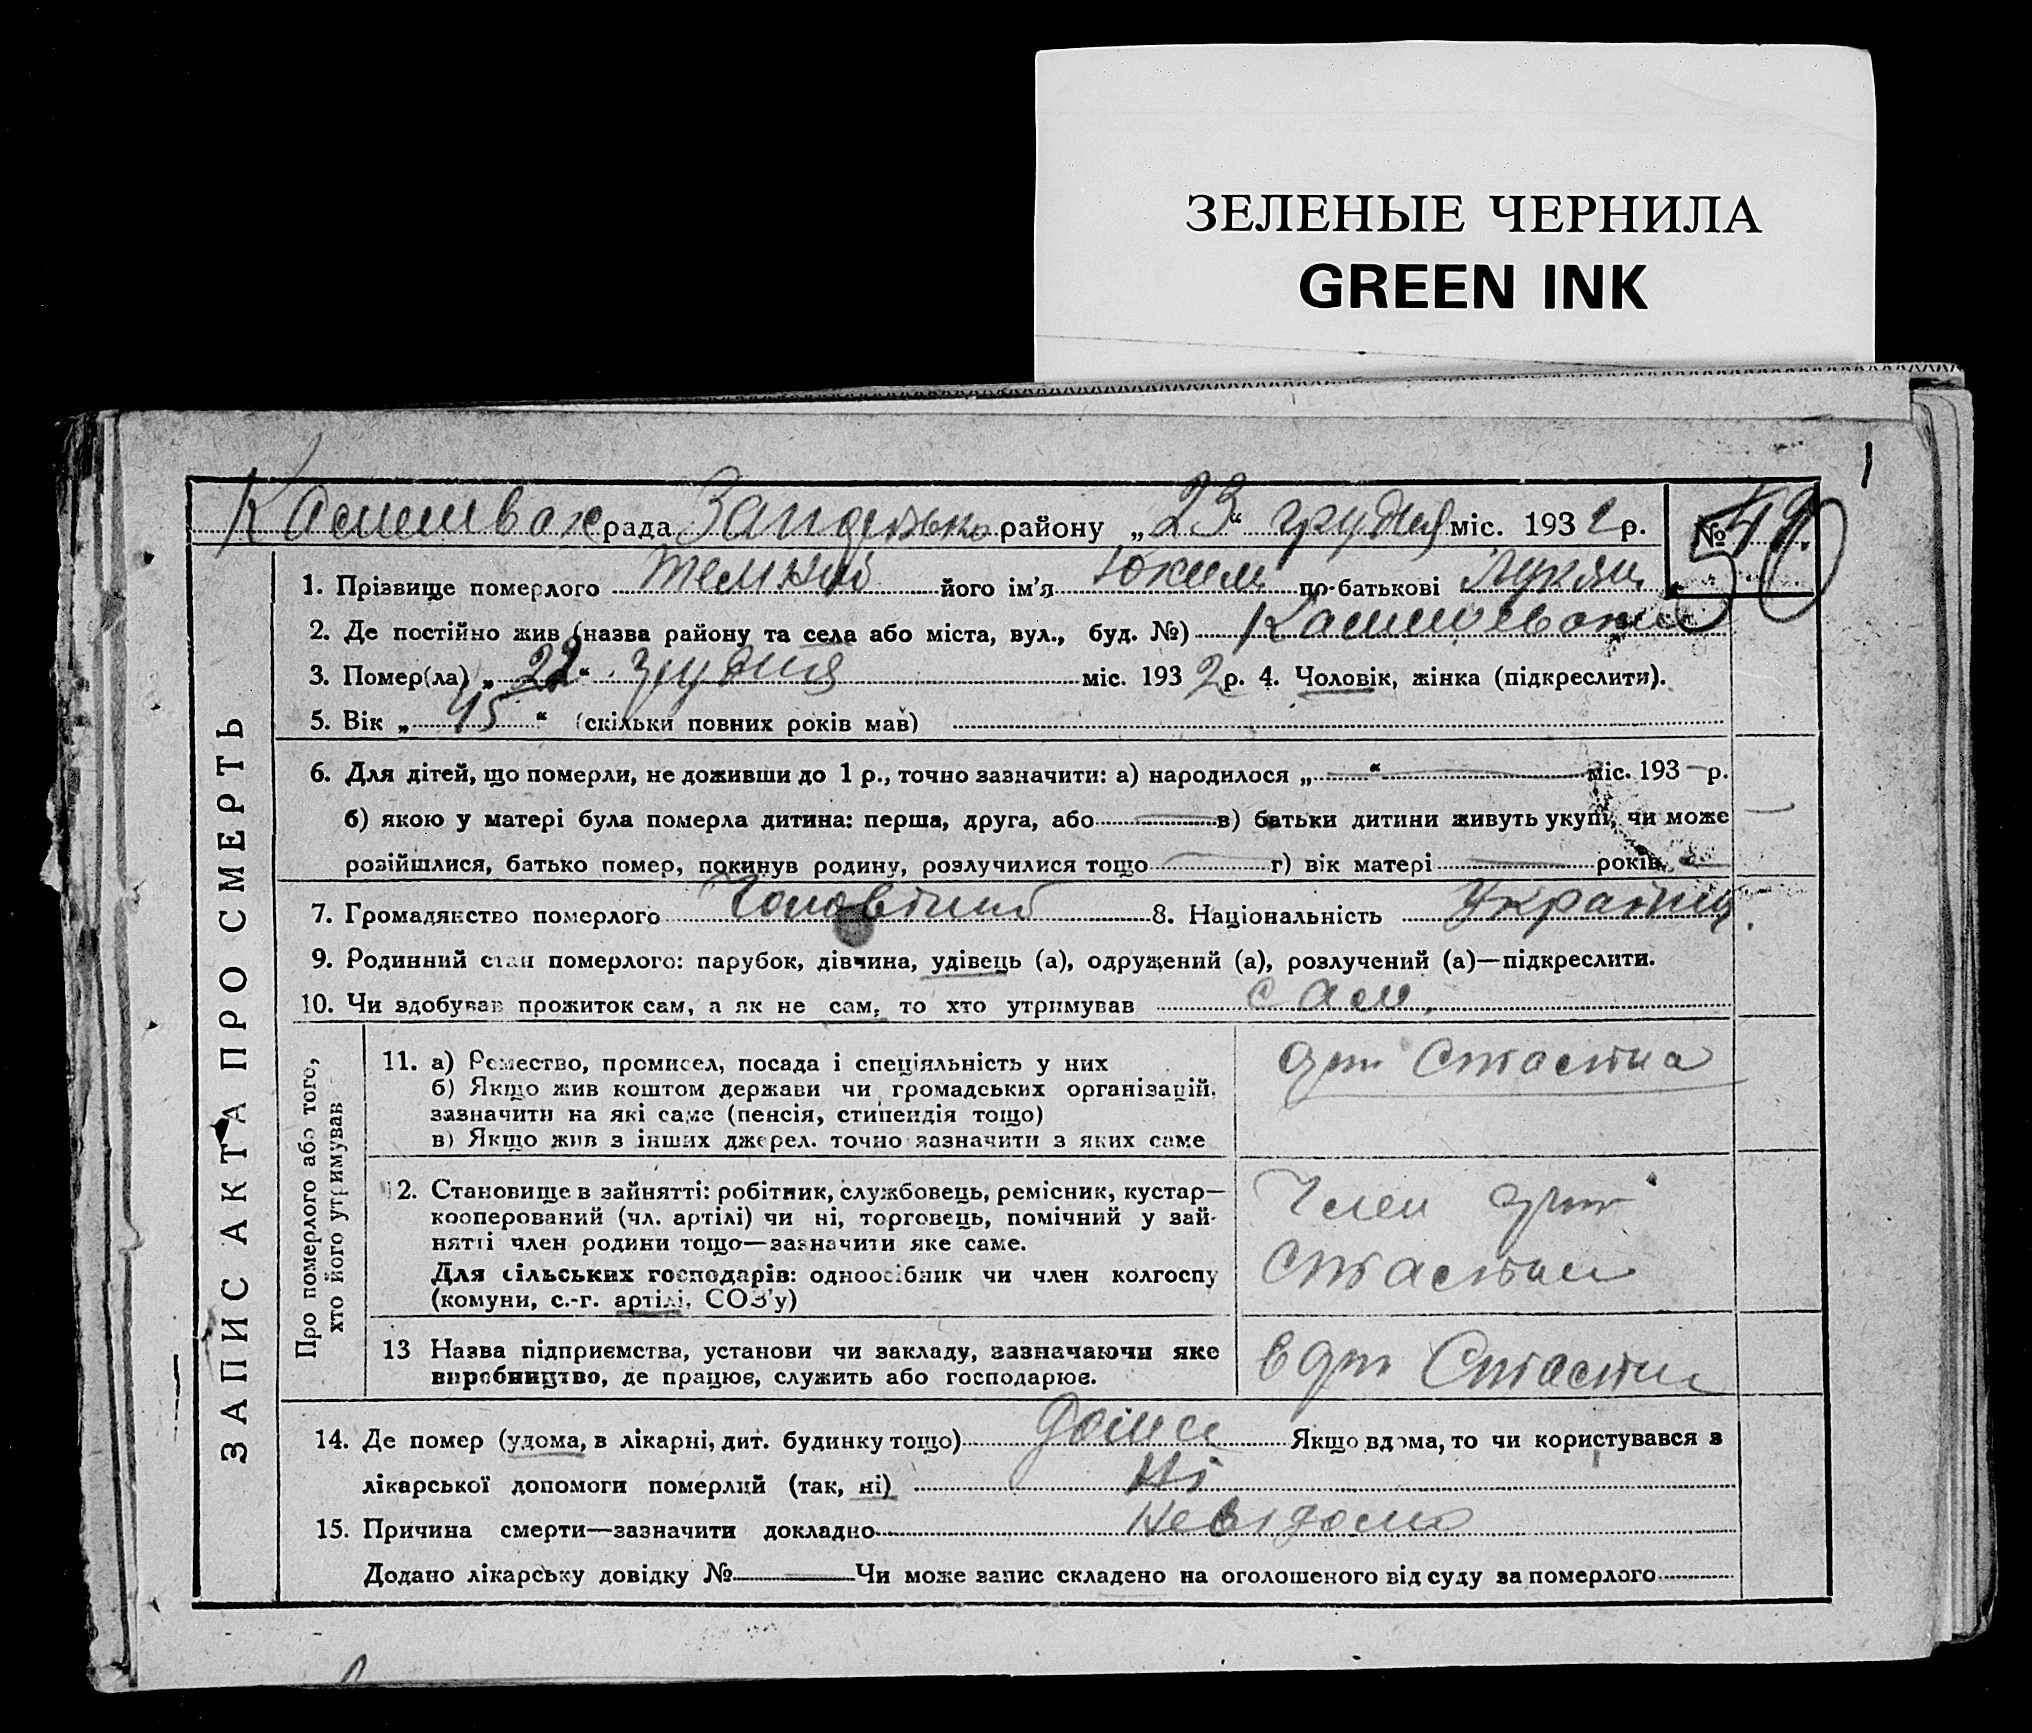 ЗЕЛЕНЫЕ ЧЕРНИЛА
GREEN INK
рада району „23“ грудня міс. 1932 р. № 49. 50
1. Прізвище померлого Темний його ім’я Юхим по-батькові Лукяи
2. Де постійно жив (назва району та села або міста, вул., буд. №)
3. Помер(ла) „22“ грудня міс. 1932 р. 4. Чоловік, жінка (підкреслити).
5. Вік „45“ (скільки повних років мав)
6. Для дітей, що померли, не доживши до 1 р., точно зазначити: а) народилося „—“ — міс. 193—р.
б) якою у матері була померла дитина: перша, друга, або — в) батьки дитини живуть укупі, чи може —
розійшлися, батько помер, покинув родину, розлучилися тощо — г) вік матері — років —
7. Громадянство померлого 8. Національність Україниц.
9. Родинний стан померлого: парубок, дівчина, удівець (а), одружений (а), розлучений (а)—підкреслити.
10. Чи здобував прожиток сам, а як не сам, то хто утримував сам
ЗАПИС АКТА ПРО СМЕРТЬ
Про померлого або того,
хто його утримував
11. а) Ремество, промисел, посада і спеціяльність у них
б) Якщо жив коштом держави чи громадських організацій,
зазначити на які саме (пенсія, стипендія тощо)
в) Якщо жив з інших джерел, точно зазначити з яких саме
12. Становище в зайнятті: робітник, службовець, ремісник, кустар—
кооперований (чл. артілі) чи ні, торговець, помічний у зай-
нятті член родини тощо—зазначити яке саме.
Для сільських господарів: одноосібник чи член колгоспу
(комуни, с.-г. артілі, СОЗ’у)
Член
13 Назва підприємства, установи чи закладу, зазначаючи яке
виробництво, де працює, служить або господарює.
в
14. Де помер (удома, в лікарні, дит. будинку тощо) дома Якщо вдома, то чи користувався з
лікарської допомоги померлий (так, ні) Ні
15. Причина смерти—зазначити докладно Невідомо
Додано лікарську довідку № — Чи може запис складено на оголошеного від суду за померлого